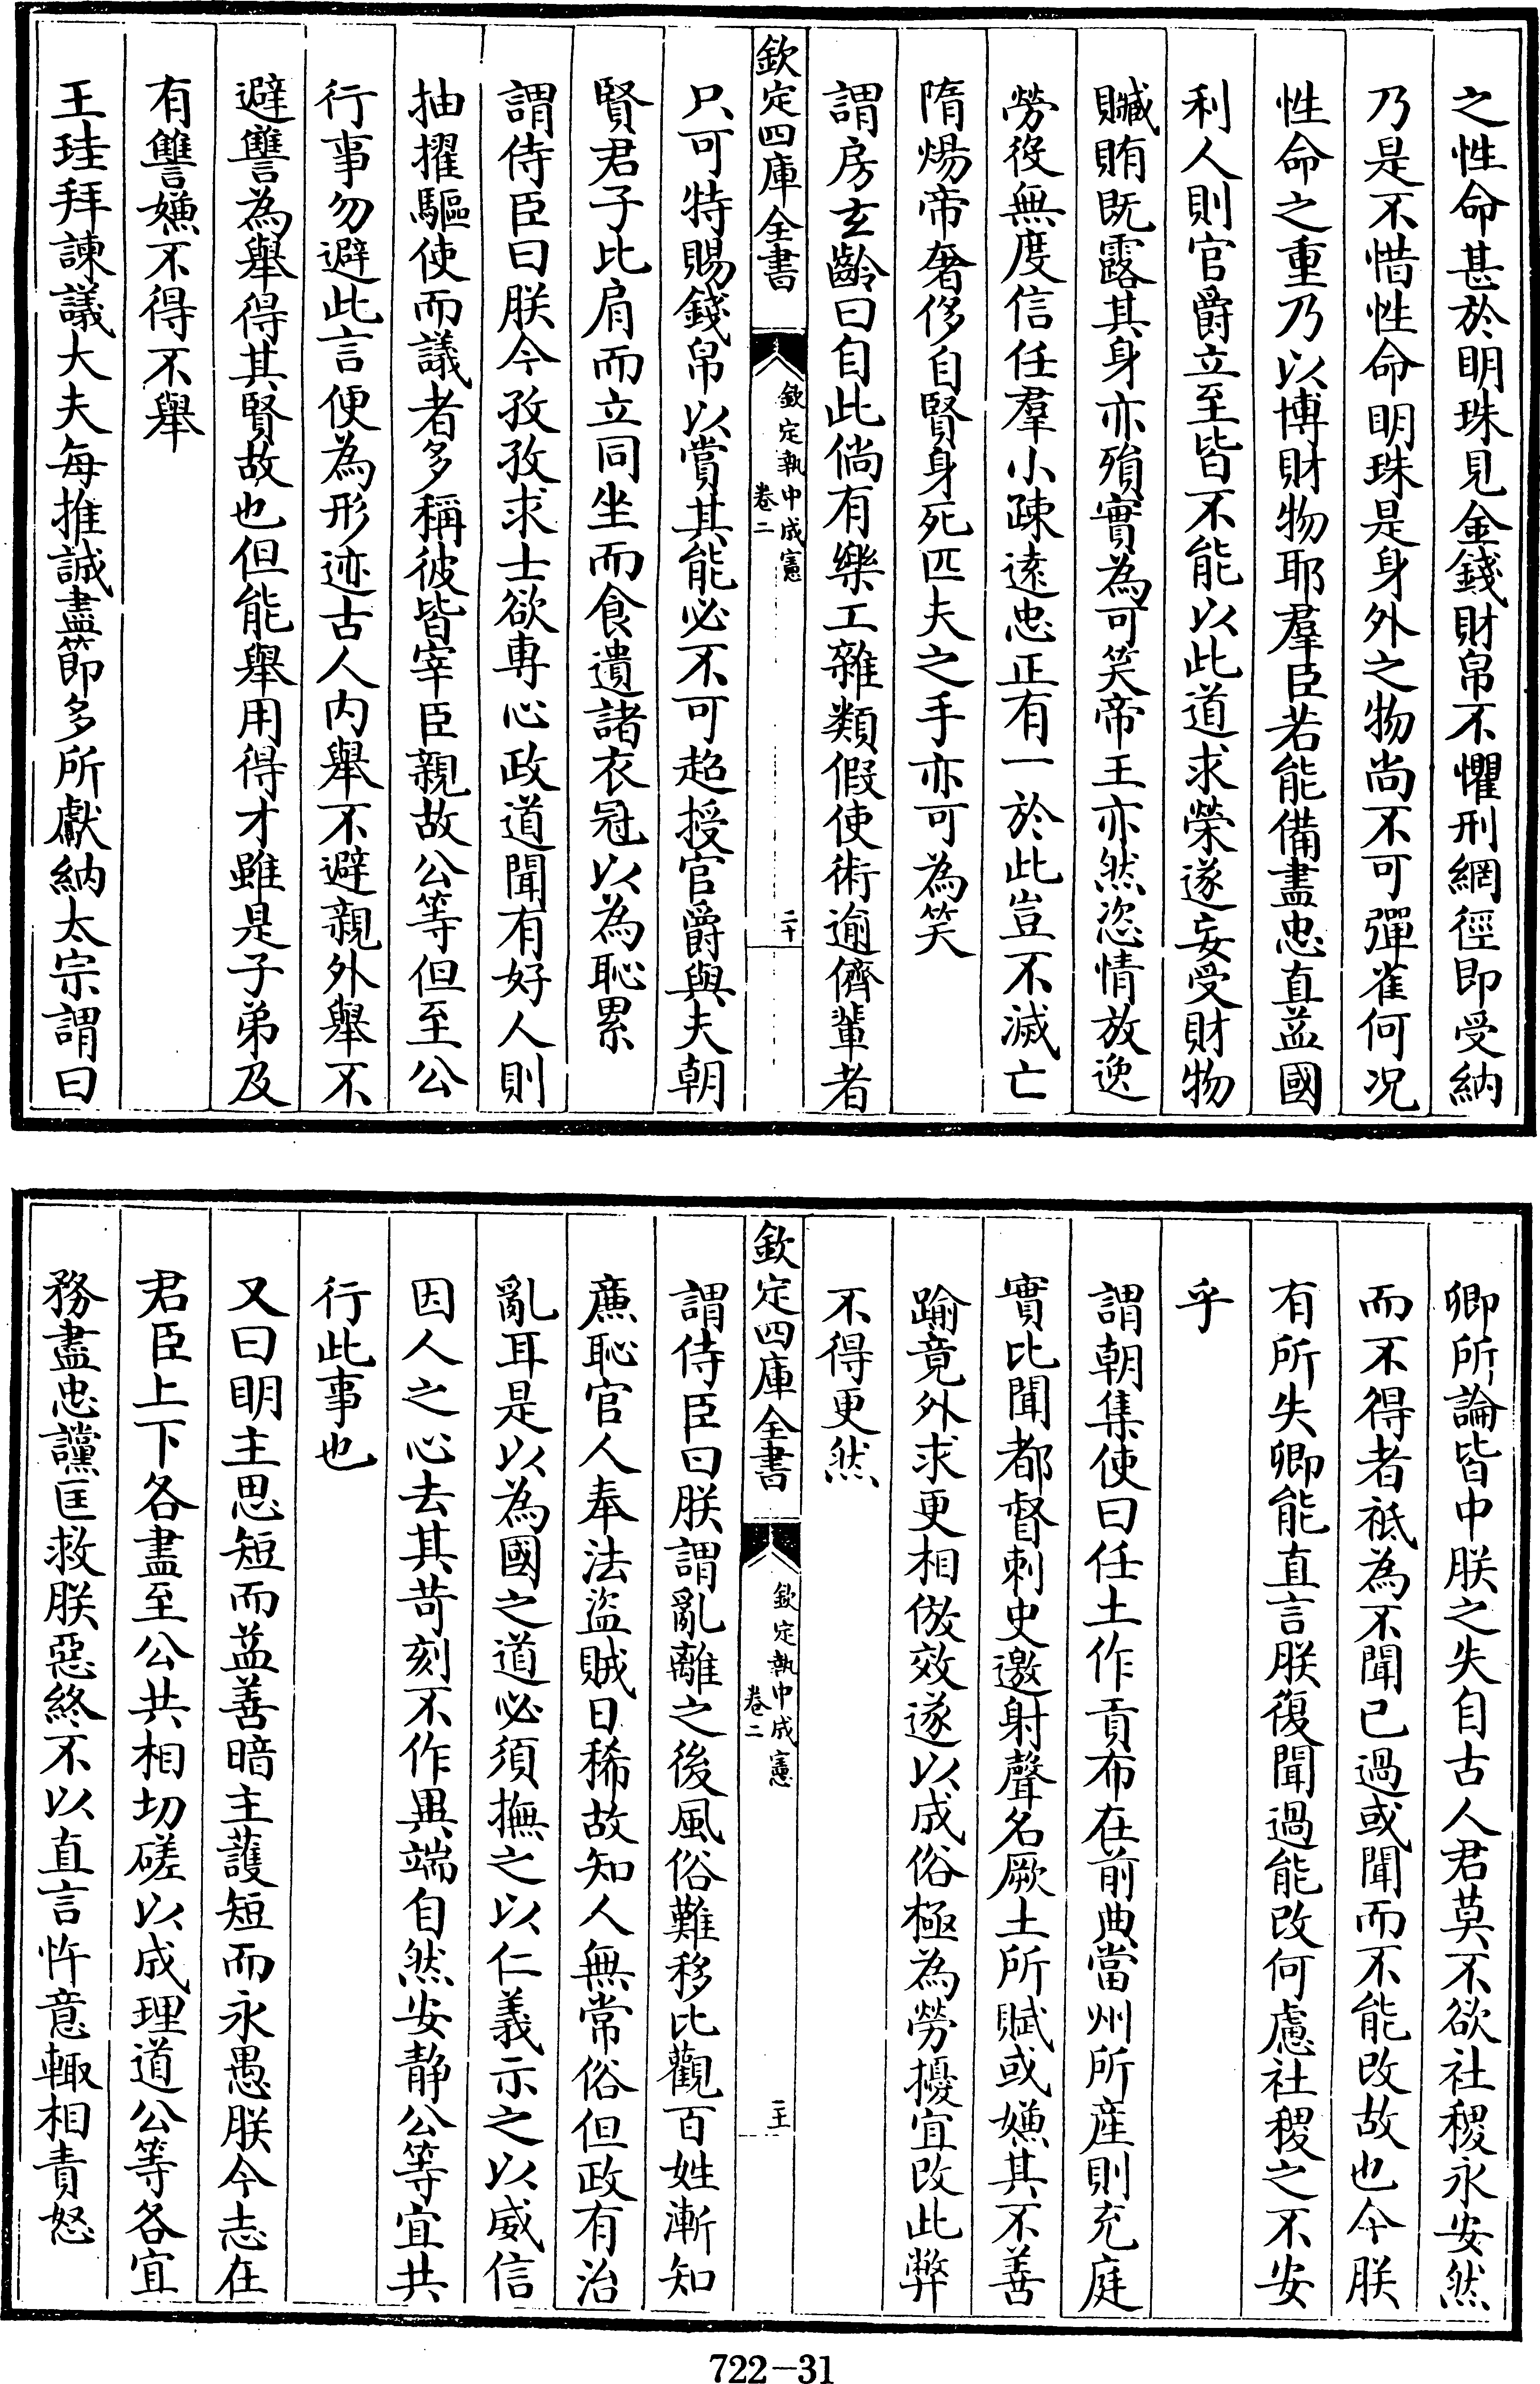 之性命甚於明珠見金錢財帛不懼刑網徑即受納
乃是不惜性命明珠是身外之物尚不可彈雀何况
性命之重乃以博財物耶羣臣若能備盡忠直益國
利人則官爵立至皆不能以此道求榮遂妄受財物
贓賄既露其身亦殞實為可笑帝王亦然恣情放逸
勞役無度信任羣小疎逺忠正有一於此豈不滅亡
隋煬帝奢侈自賢身死匹夫之手亦可為笑
謂房玄齡曰自此倘有樂工雜類假使術逾儕輩者
欽定四庫全書
欽定執中成憲
卷二
二十
只可特賜錢帛以賞其能必不可超授官爵與夫朝
賢君子比肩而立同坐而食遺諸衣冠以為恥累
謂侍臣曰朕今孜孜求士欲專心政道聞有好人則
抽擢驅使而議者多稱彼皆宰臣親故公等但至公
行事勿避此言便為形迹古人内舉不避親外舉不
避讐為舉得其賢故也但能舉用得才雖是子弟及
有讐嫌不得不舉
王珪拜諫議大夫每推誠盡節多所獻納太宗謂曰
卿所論皆中朕之失自古人君莫不欲社稷永安然
而不得者祗為不聞已過或聞而不能改故也今朕
有所失卿能直言朕復聞過能改何慮社稷之不安
乎
謂朝集使曰任土作貢布在前典當州所産則充庭
實比聞都督刺史邀射聲名厥土所賦或嫌其不善
踰竟外求更相倣效遂以成俗極為勞擾宜改此弊
不得更然
欽定四庫全書
欽定執中成憲
卷二
二十一
謂侍臣曰朕謂亂離之後風俗難移比觀百姓漸知
亷恥官人奉法盜賊日稀故知人無常俗但政有治
亂耳是以為國之道必須撫之以仁義示之以威信
因人之心去其苛刻不作異端自然安静公等宜共
行此事也
又曰明主思短而益善暗主䕶短而永愚朕今志在
君臣上下各盡至公共相切磋以成理道公等各宜
務盡忠讜匡救朕惡終不以直言忤意輙相責怒
722-31